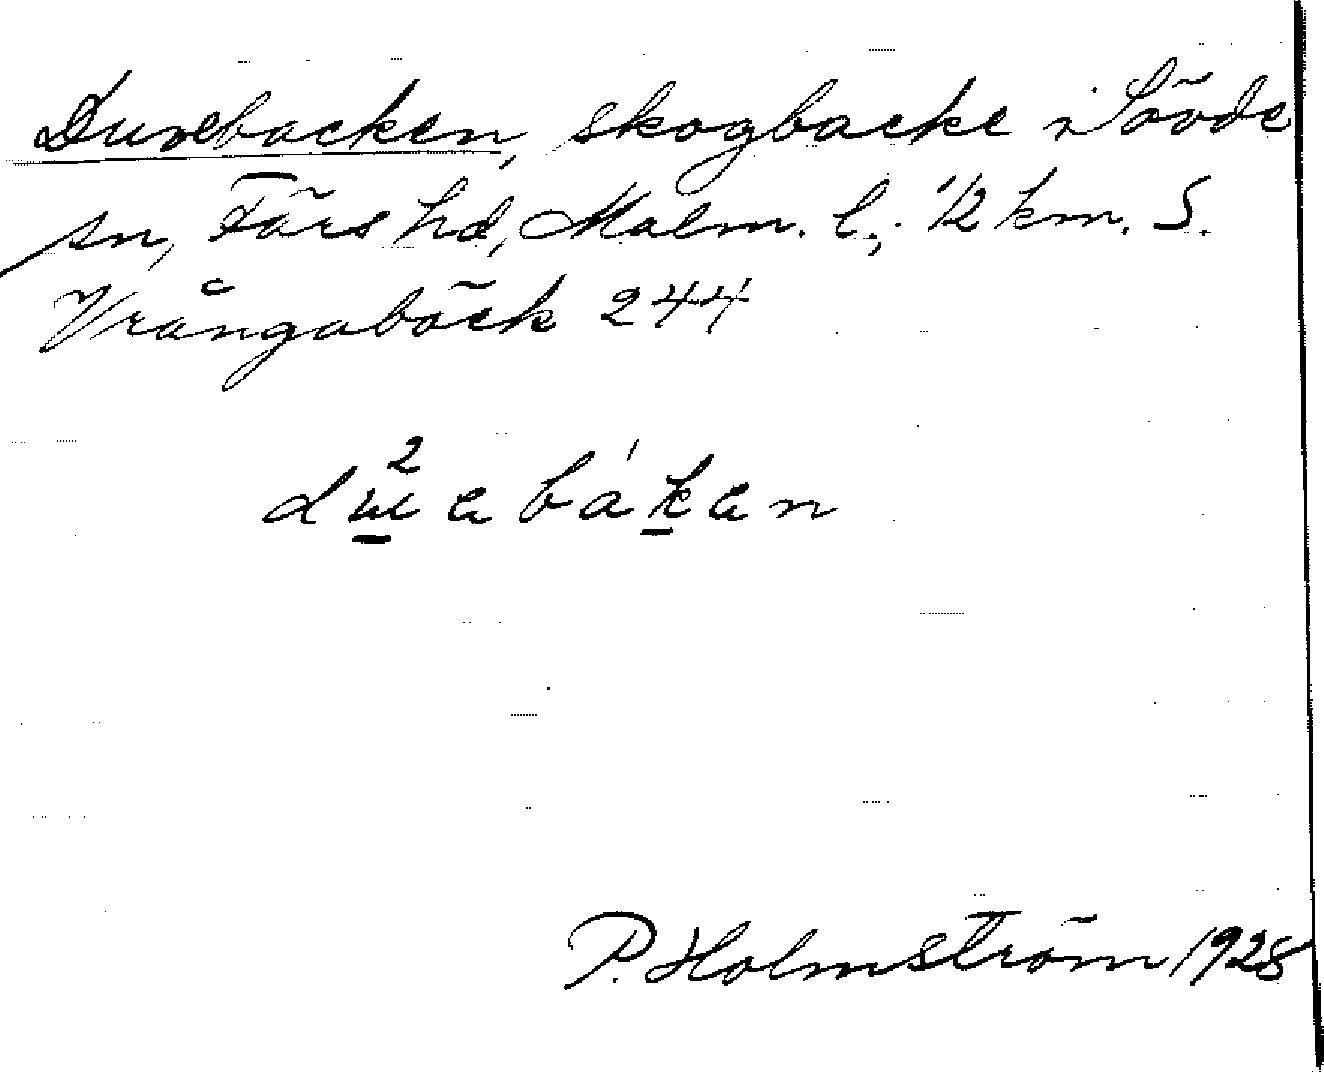 Duvebacken, skogbacke i Sövde
sn, Färs hd, Malm. l.; 1/2 km. S.
Vrångabäck 244
P. Holmström 1928